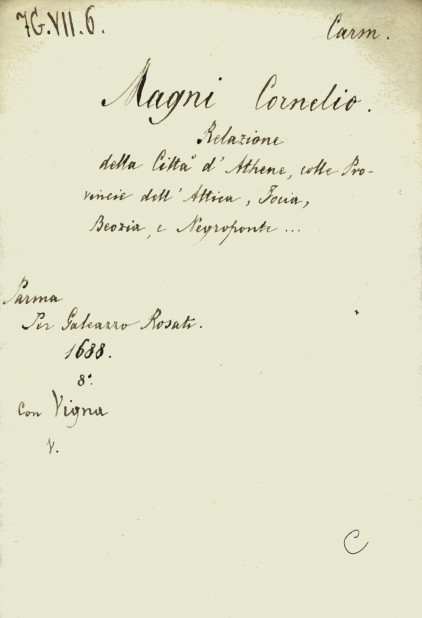 7G.VII.6.
Carm.
Magni Cornelio.
Relazione
della Città d'Athene, colle Pro-
vincie dell'Attica, Focia,
Beozia, e Negroponte ...
Parma
Per Galeazzo Rosati.
1688.
8°.
Con Vigna
V.
C